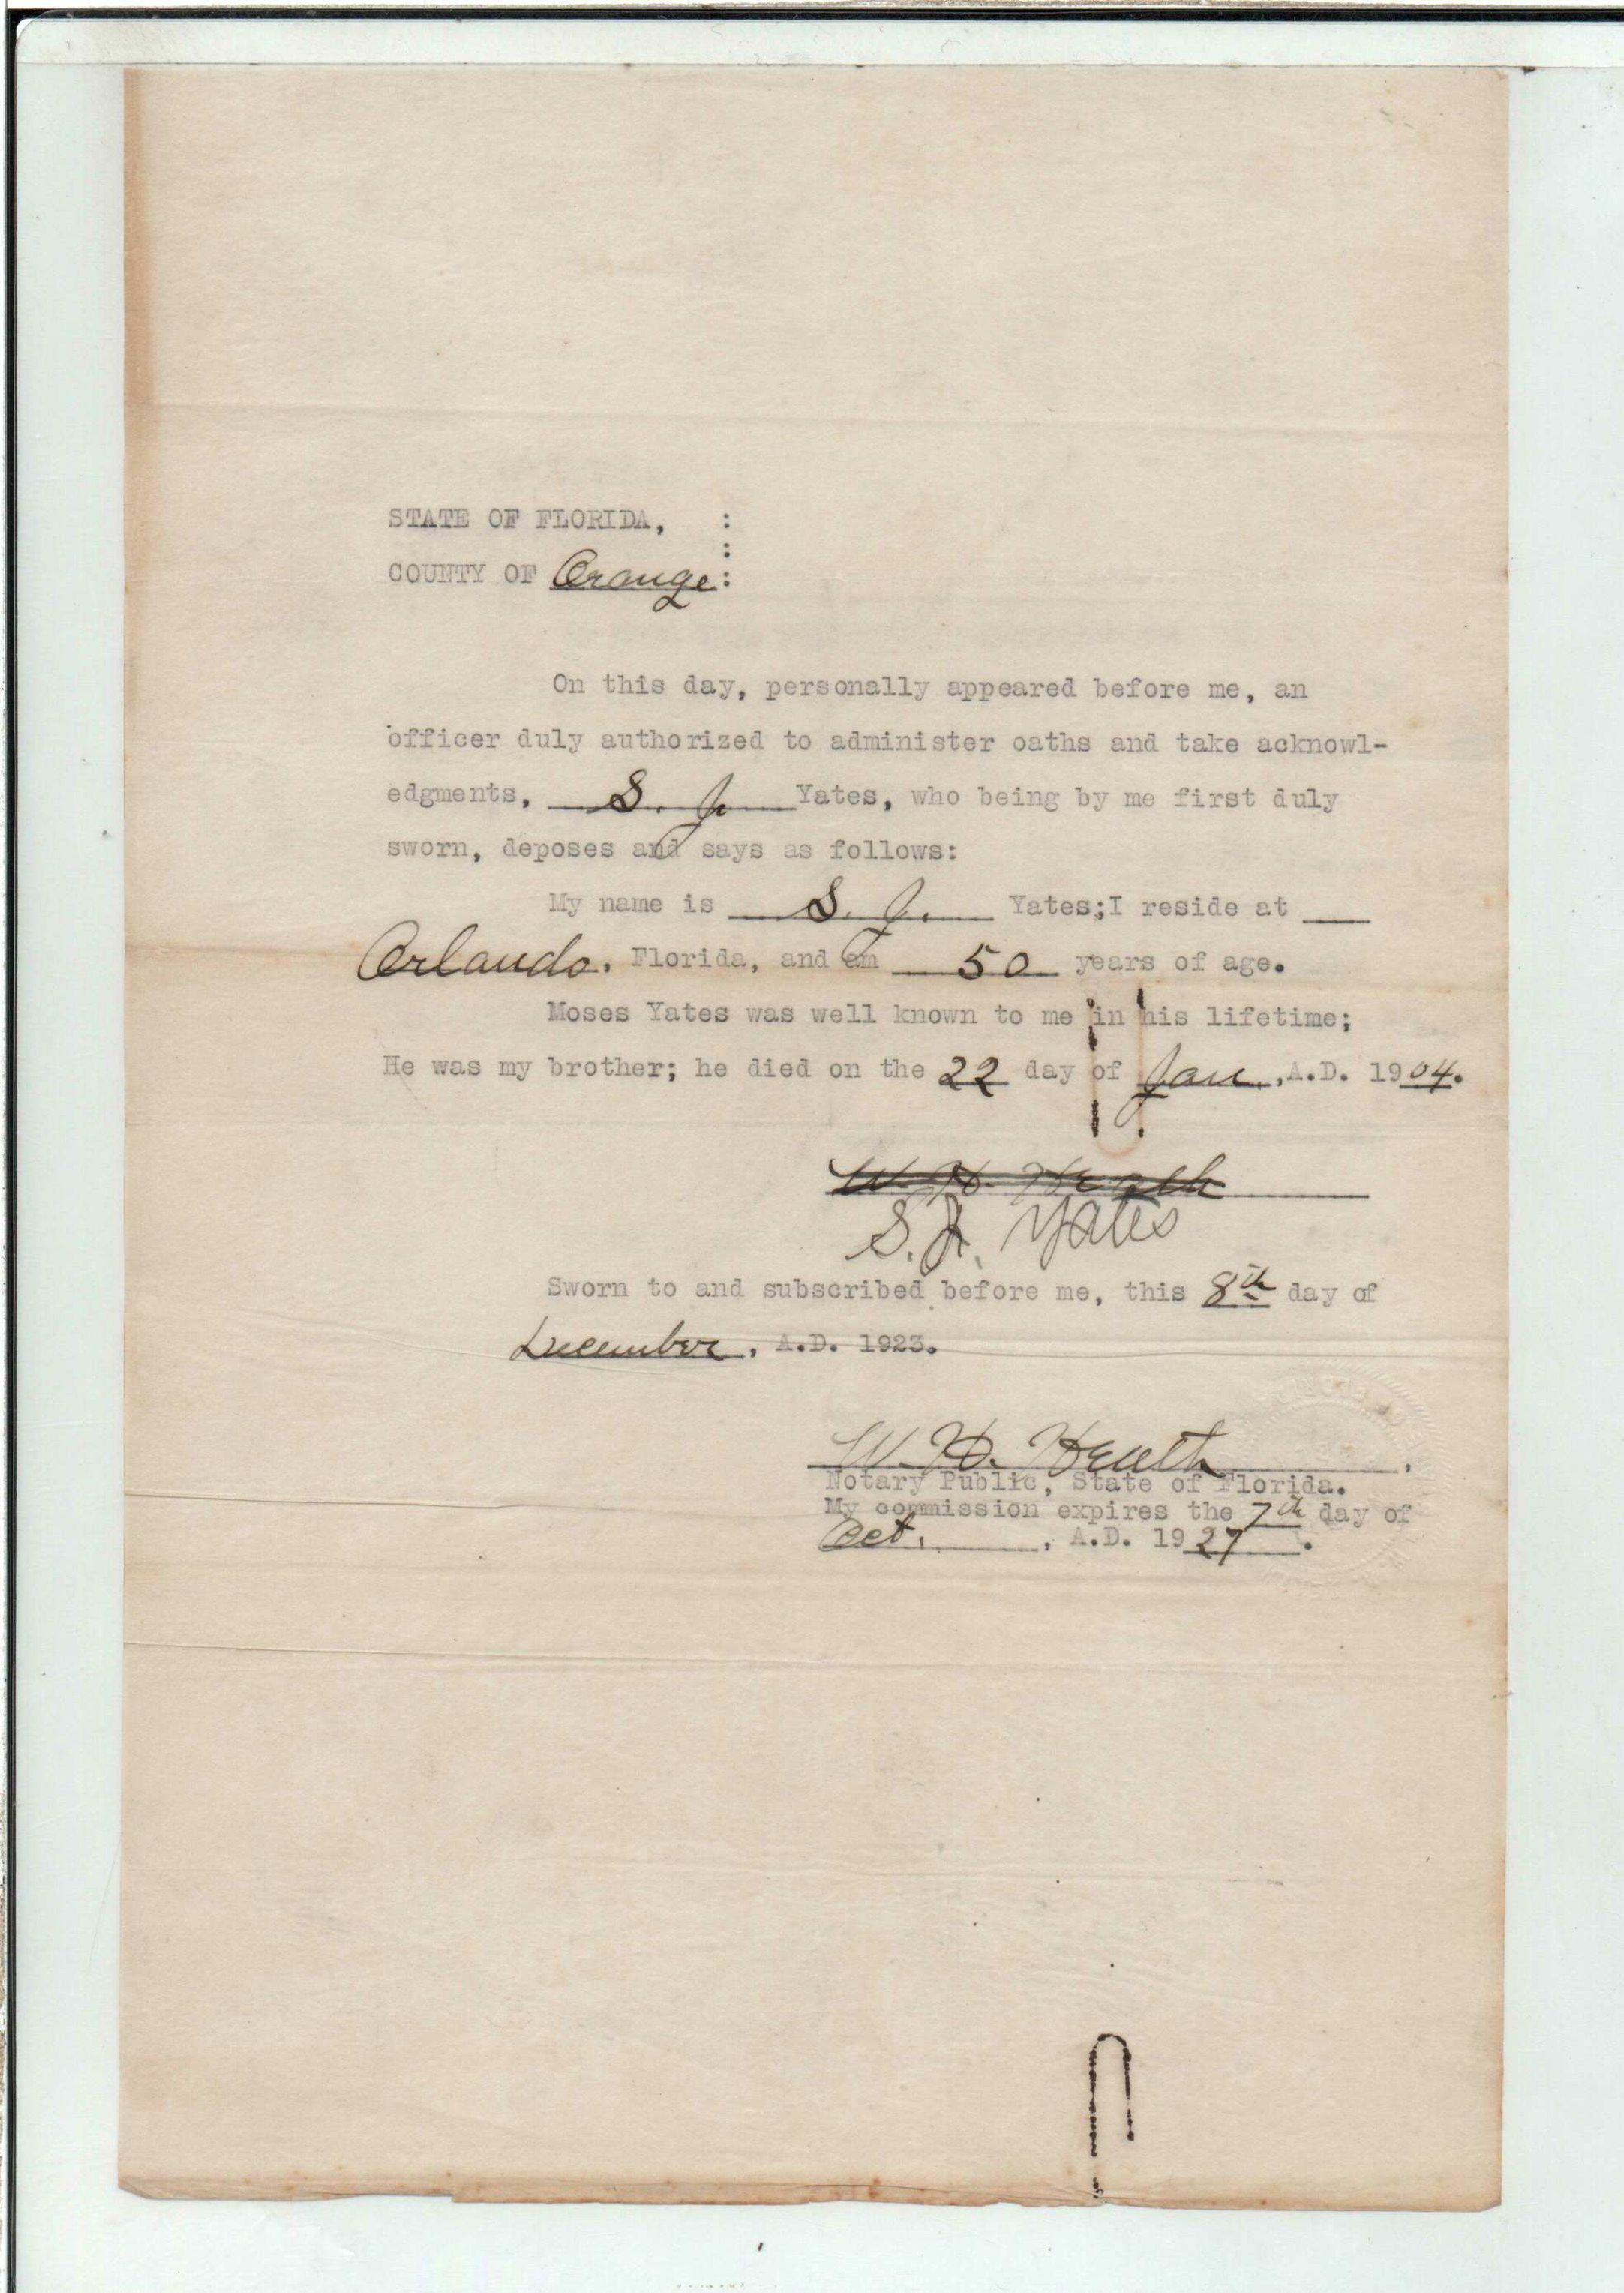 STATE OF FLORIDA, :
:
COUNTY OF Orange:
On this day, personally appeared before me, an
officer duly authorized to administer oaths and take acknowl-
edgments, S. J. Yates, who being by me first duly
sworn, deposes and says as follows:
My name is S. J. Yates;I reside at
Orlando, Florida, and am 50 years of age.
Moses Yates was well known to me in his lifetime;
He was my brother; he died on the 22 day of Jan., A.D. 1904.
W. H. Heath
S. J. Yates
Sworn to and subscribed before me, this 8th day of
December, A.D. 1923.
W. H. Heath,
Notary Public, State of Florida.
My commission expires the 7th day of
Oct., A.D. 1927.